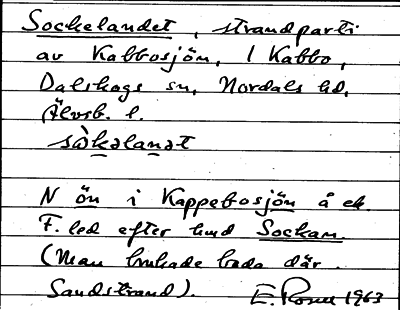 Sockelandet, strandparti
av Kabbosjön, 1 Kabbo,
Dalskogs sn, Nordals hd,
Älvsb. l.
sòkəlanət
N ön i Kappebosjön å ek.
F. led efter hmd Sockan.
(Man brukade bada där.
Sandstrand). E. 1963